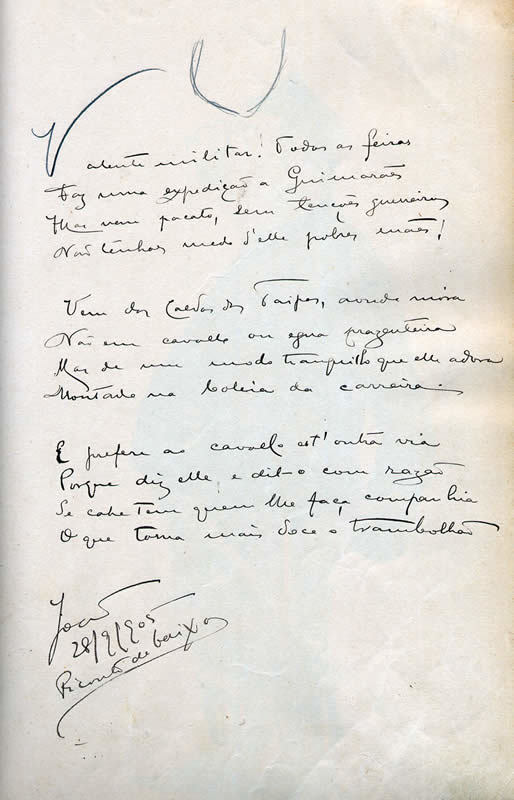 Valente militar! Todas as feiras
Faz uma expedição a Guimarães
Mas vem pacato, sem tenções guerreiras
Não tenhas medo d'elle pobres mães!
Vem das Caldas das Taipas, aonde mora
Não em cavallo ou egua prazenteira
Mas de um modo tranquillo que elle adora
Montado na boleia da carreira.
E prefere ao cavallo est'outra via
Porque diz elle, e dil-o com razão
Se cahe tem quem lhe faça companhia
O que torna mais doce o trambolhão
João
28/9/905
de baixo